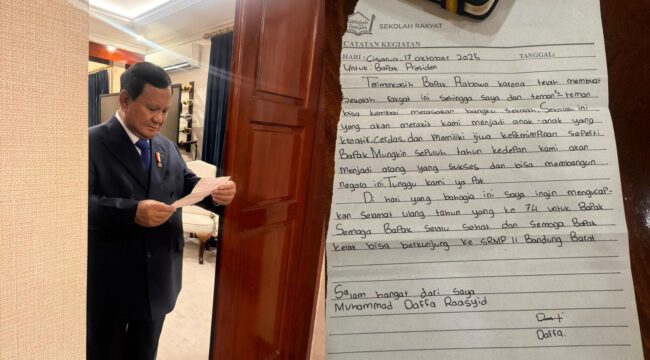 Sekolah Rakyat
SEKOLAH RAKYAT
CATATAN KEGIATAN
HARI : Cisarua, 17 oktober 2025
TANGGAL:
Untuk : Bapak Presiden
Termakasih Bapak Prabowo karena telah membuat
Sekolah rakyat ini sehingga saya dan teman²teman
bisa kembali merasakan bangku sekolah. Sekolah ini
yang akan merakit kami menjadi anak-anak yang
kreatif. Cerdas. dan memiliki jiwa kepemimpinan seperti
Bapak. Mungkin sepuluh tahun kedepan kami akan
menjadi orang yang sukses dan bisa membangun
negara ini. Tunggu kami ya Pak
Di hari yang bahagia ini saya ingin mengucap-
kan selamat ulang tahun yang ke 74 untuk Bapak
Semoga Bapak selalu sehat dan semoga Bapak
kelak bisa berkunjung ke SRMP 11 Bandung Barat
Salam hangat dari saya
Muhammad Daffa Raasyid
Daffa.